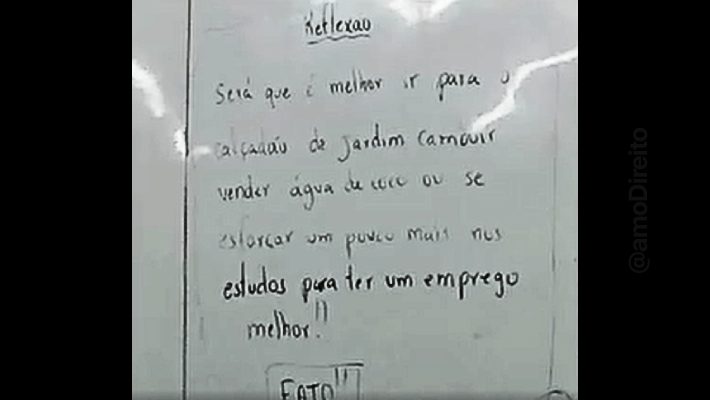 Reflexão
Será que é melhor ir para o
calçadão de Jardim Camburi
vender água de coco ou se
esforçar um pouco mais nos
estudos para ter um emprego
melhor!!
FATO!!
@amoDireito